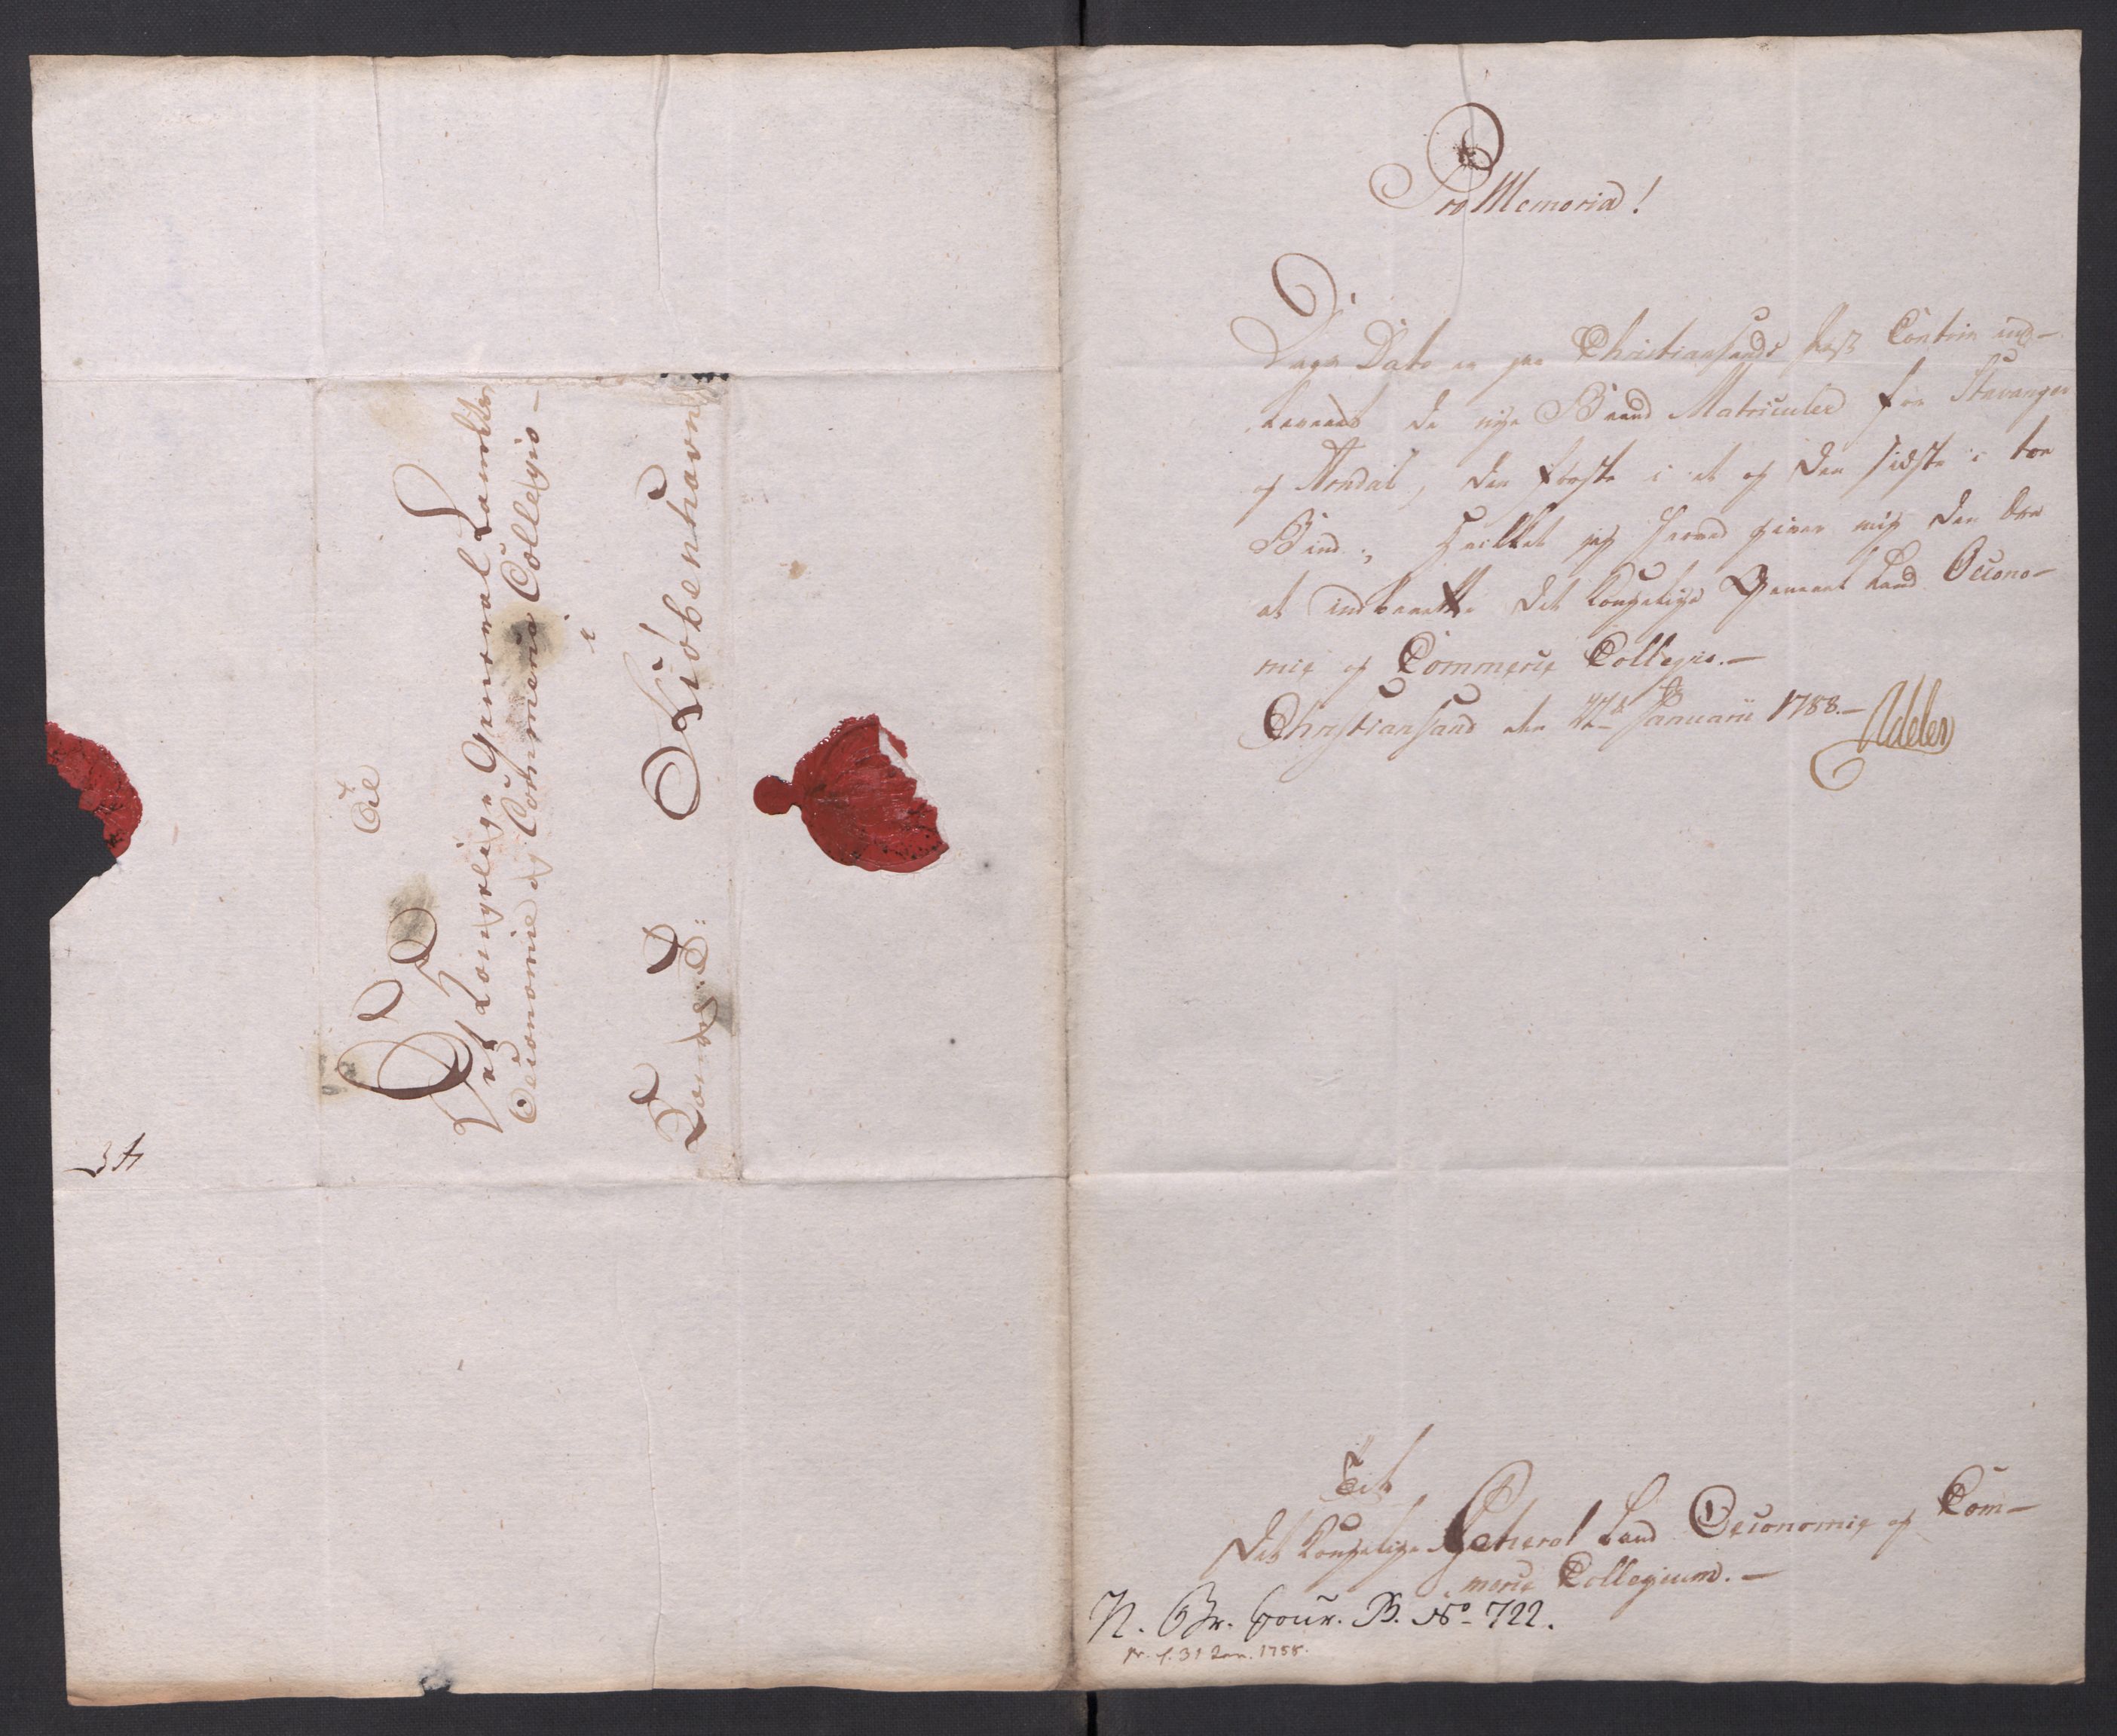 Til
Det Kongelige General Landets
Oeconomie og Commerce Collegio -
i
Kiøbenhavn
Kong: T:
Pro Memoria!
Dags Dato er paa Christiansands Post Contoir ind-
leveret de nye Brand Matriculer for Stavanger
og Arndal, den første i et og den sidste i toe
Bind, Hvilket jeg herved giver mig den Ære
at indberette det Kongelige General Land Oecono-
mie og Commerce Collegio. -
Christiansand den Januarii 1788. -
Adeler
Til
Det Kongelige General Land Oeconomie og Com-
merce Collegium. -
N. Br. Jour. B. No. 722.
31 Jan. 1788.